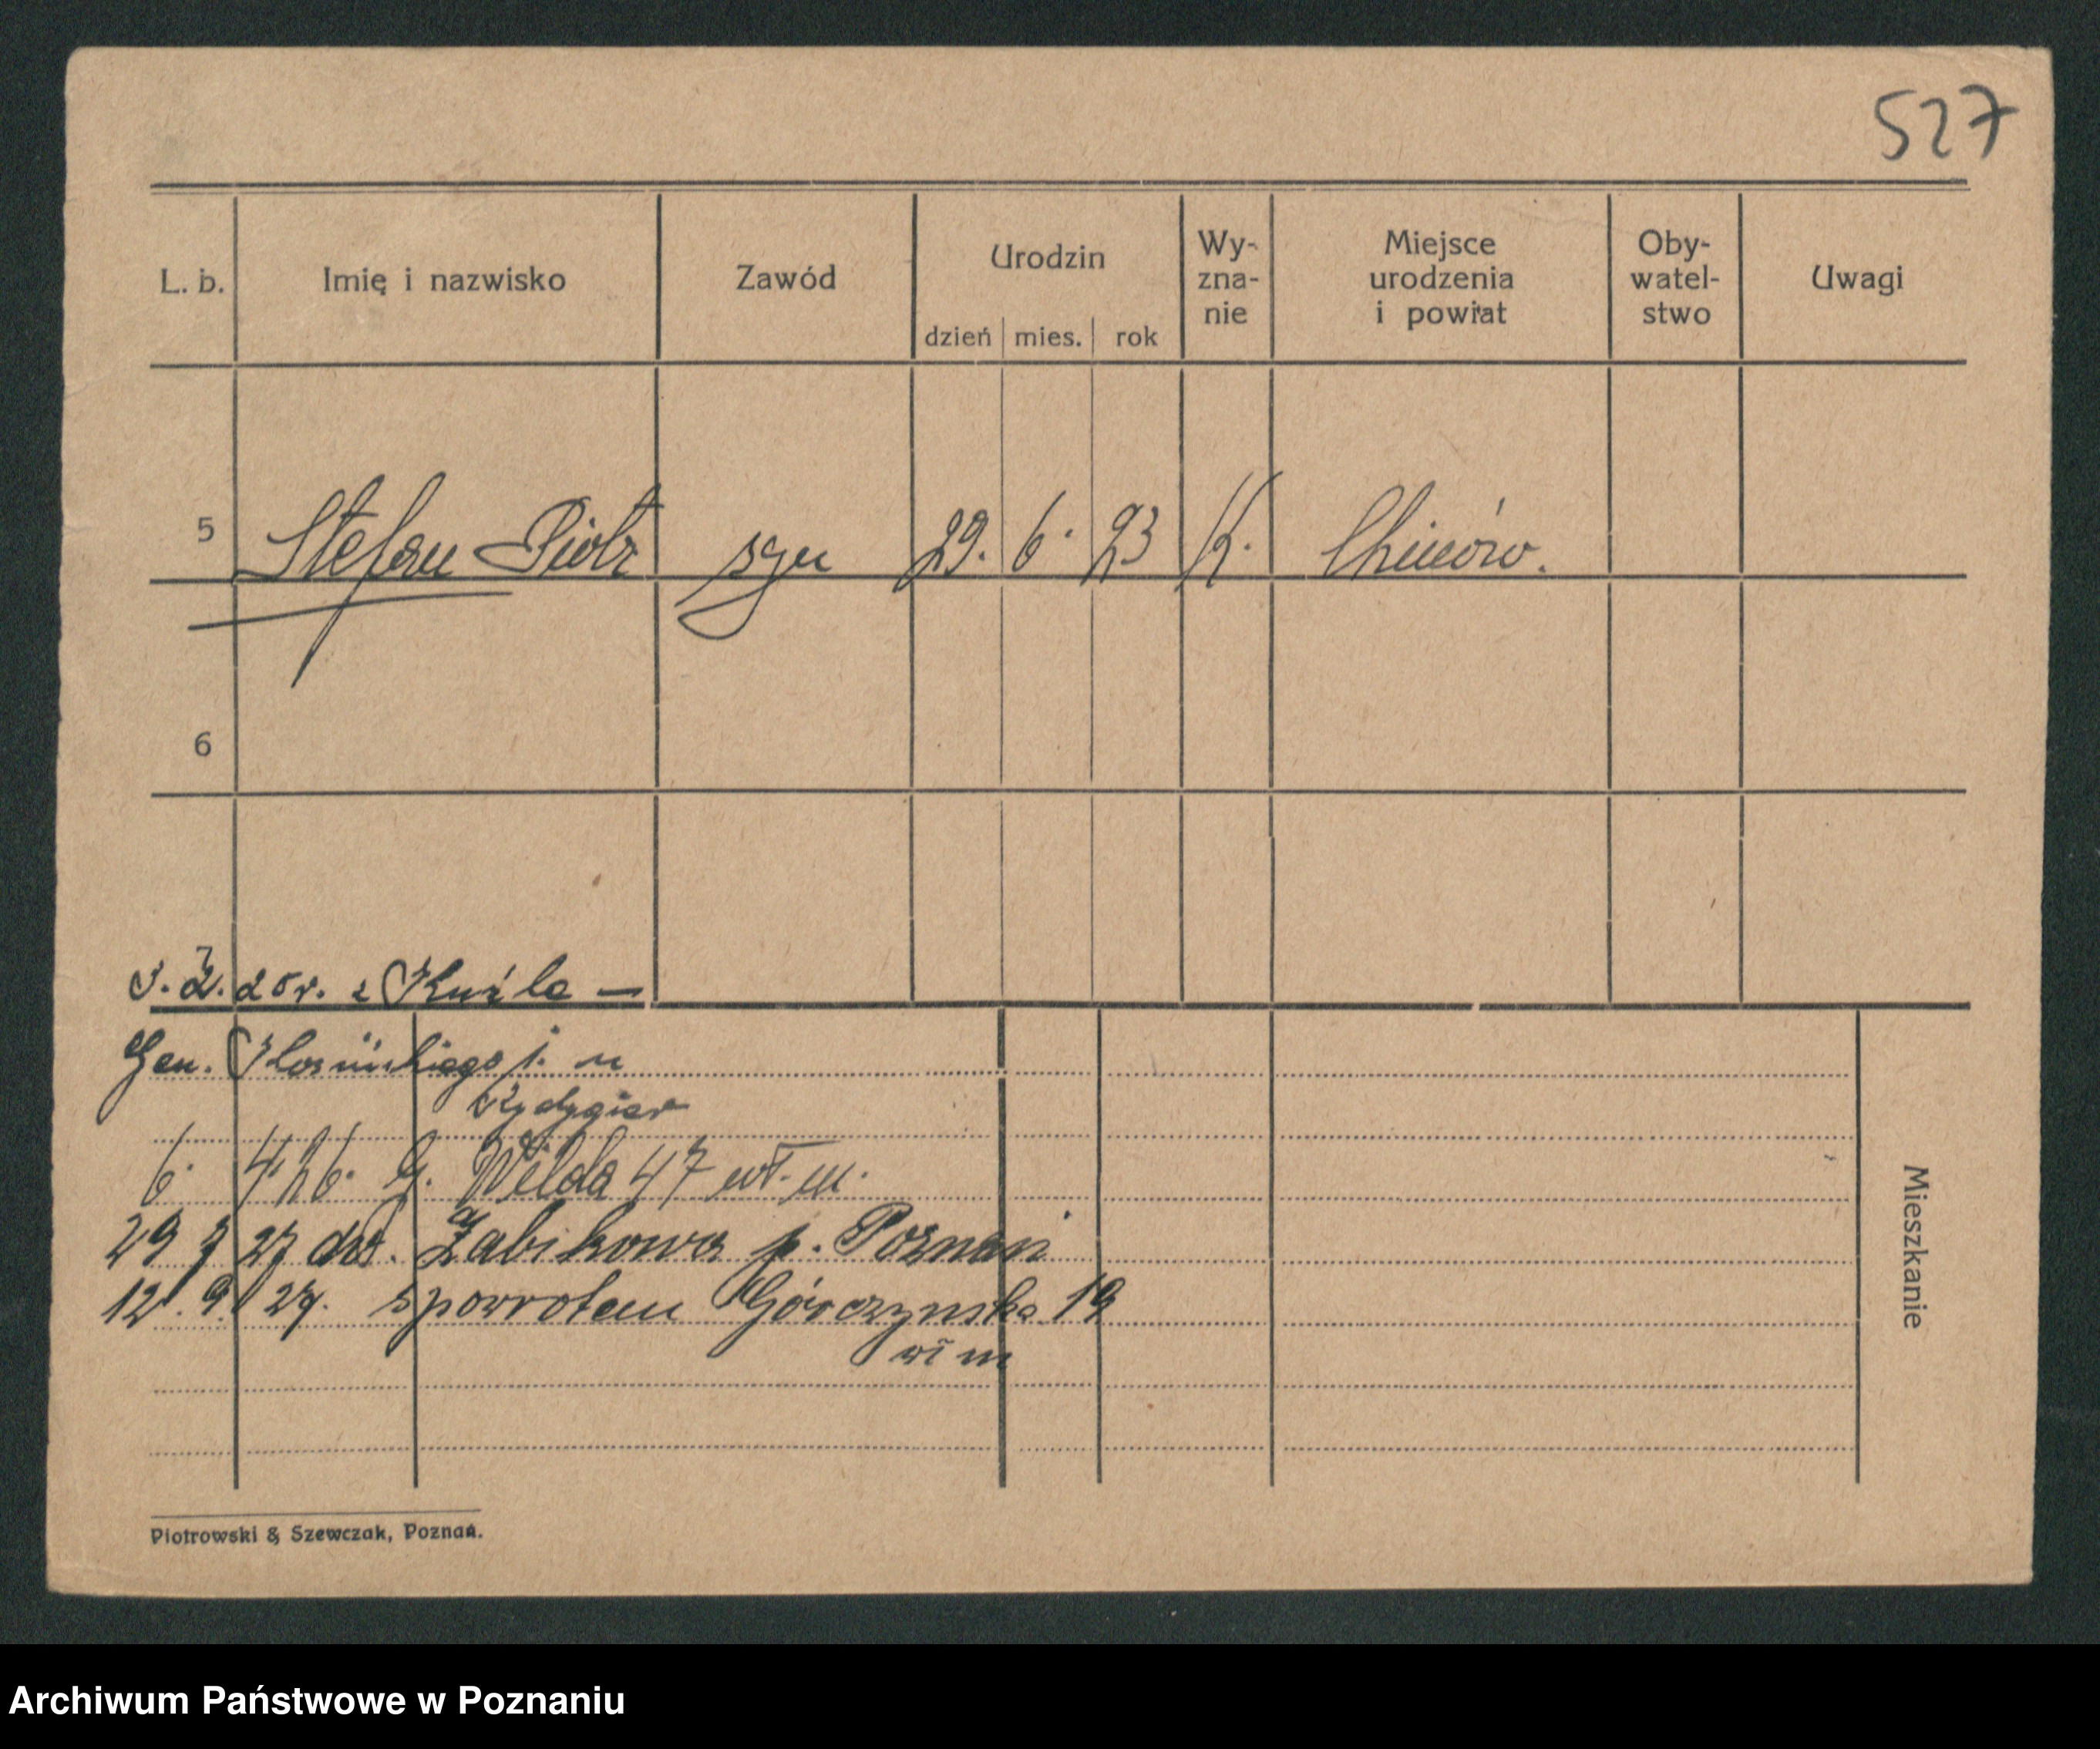 527
L. b. Imię i nazwisko Zawód Urodzin dzień mies. rok Wy-zna-nie Miejsce urodzenia i powiat Oby-watel-stwo Uwagi
5 Stefan Piotr syn 29. 6. 23 K. Chinów.
6
Gen. j. n
Rydygier
6. 4. 26. G. Wilda 47 wł. m.
29 7 27 do Żabikowa p. Poznań
12. 9. 27. spowrotem Górczyńska 19
wł m
Mieszkanie
Piotrowski & Szewczak, Poznań.
Archiwum Państwowe w Poznaniu